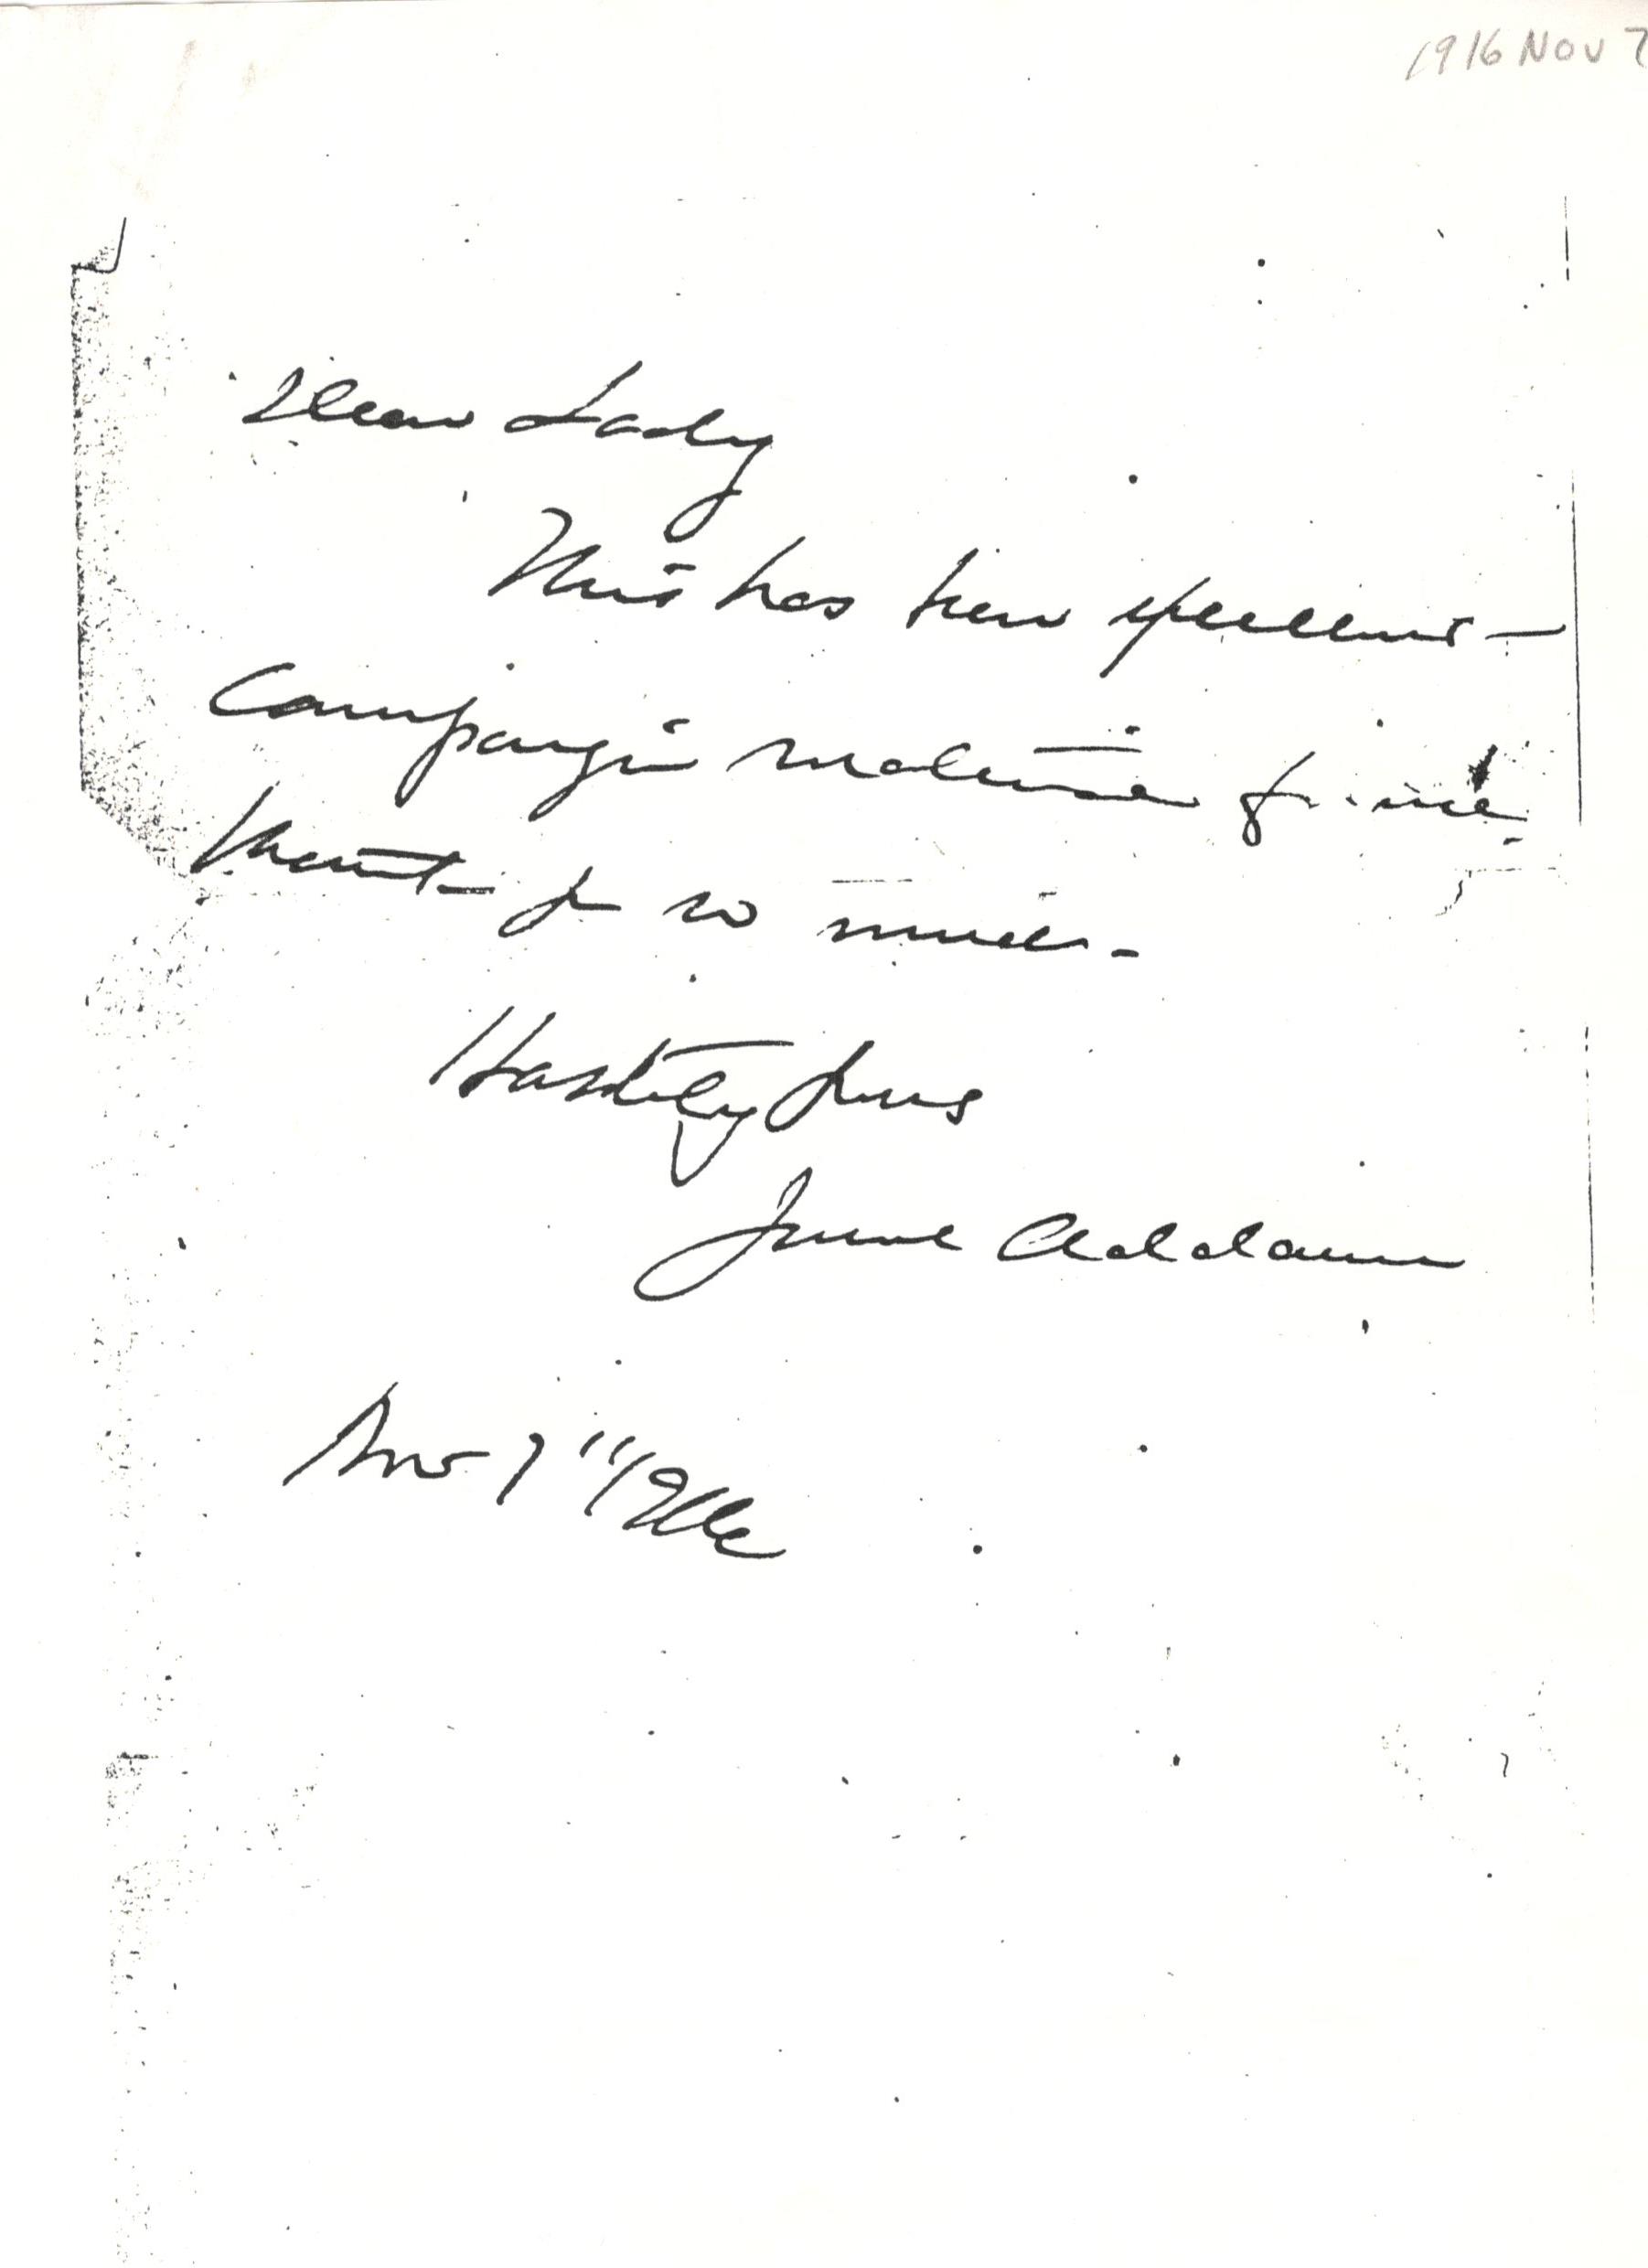 1916 Nov 7
Dear Lady
This has been excellent
campaign material for me
thank you so much -
Hastily yours
Jane Addams
Nov 7" 1916